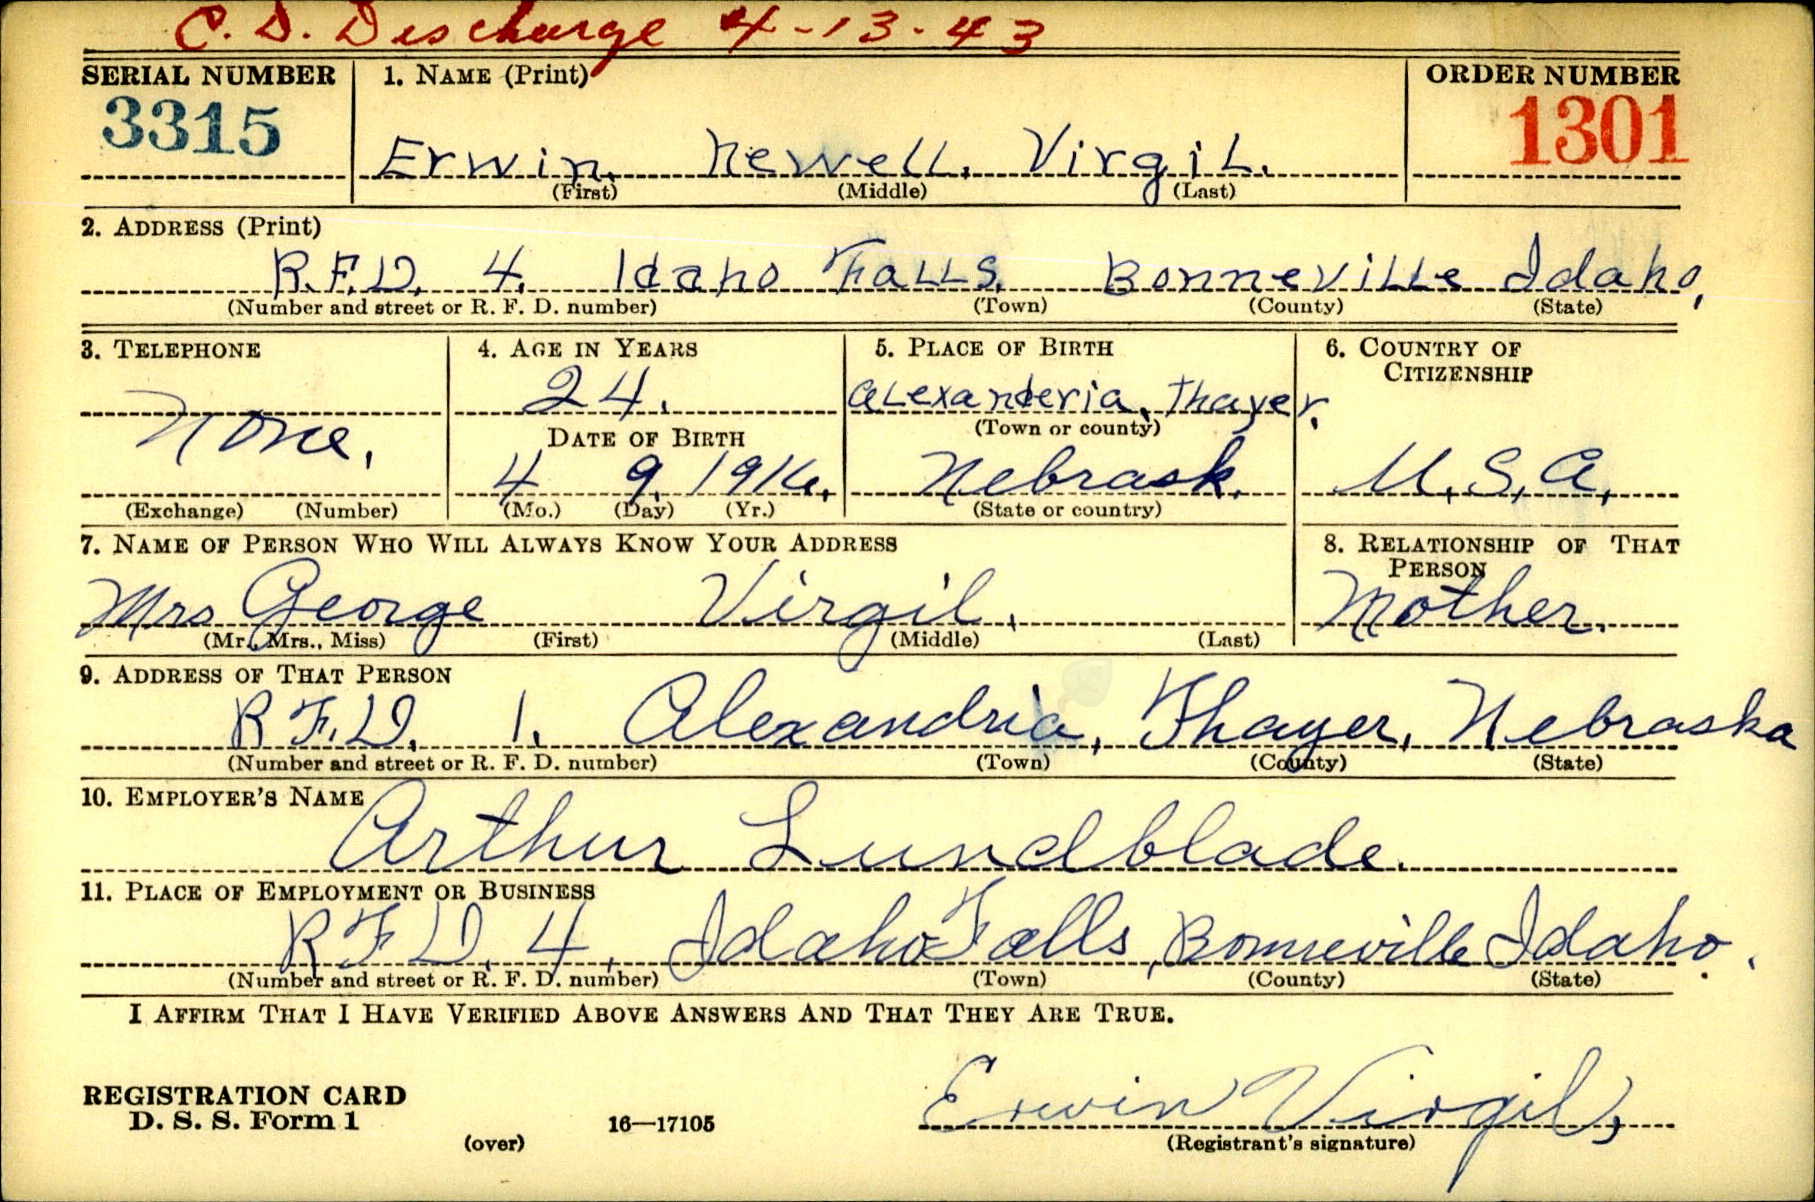 C. D. Discharge 4-13-43
SERIAL NUMBER 1. NAME (Print) ORDER NUMBER
3315 Erwin. Newell. Virgil. 1301
(First) (Middle) (Last)
2. ADDRESS (Print)
R.F.D. 4. Idaho Falls. Bonneville Idaho,
(Number and street or R. F. D. number) (Town) (County) (State)
3. TELEPHONE 4. AGE IN YEARS 5. PLACE OF BIRTH 6. COUNTRY OF CITIZENSHIP
None, 24. Alexanderia, Thayer, U.S.A,
(Town or county)
DATE OF BIRTH
4 9, 1916, Nebrask.
(Exchange) (Number) (Mo.) (Day) (Yr.) (State or country)
7. NAME OF PERSON WHO WILL ALWAYS KNOW YOUR ADDRESS 8. RELATIONSHIP OF THAT PERSON
Mrs George Virgil, Mother.
(Mr., Mrs., Miss) (First) (Middle) (Last)
9. ADDRESS OF THAT PERSON
R.F.D. 1. Alexandria, Thayer, Nebraska
(Number and street or R. F. D. number) (Town) (County) (State)
10. EMPLOYER'S NAME
Arthur Lundblade.
11. PLACE OF EMPLOYMENT OR BUSINESS
R F D. 4, Idaho Falls, Bonneville Idaho.
(Number and street or R. F. D. number) (Town) (County) (State)
I AFFIRM THAT I HAVE VERIFIED ABOVE ANSWERS AND THAT THEY ARE TRUE.
REGISTRATION CARD
D. S. S. Form 1 16—17105 Erwin Virgil,
(over) (Registrant's signature)